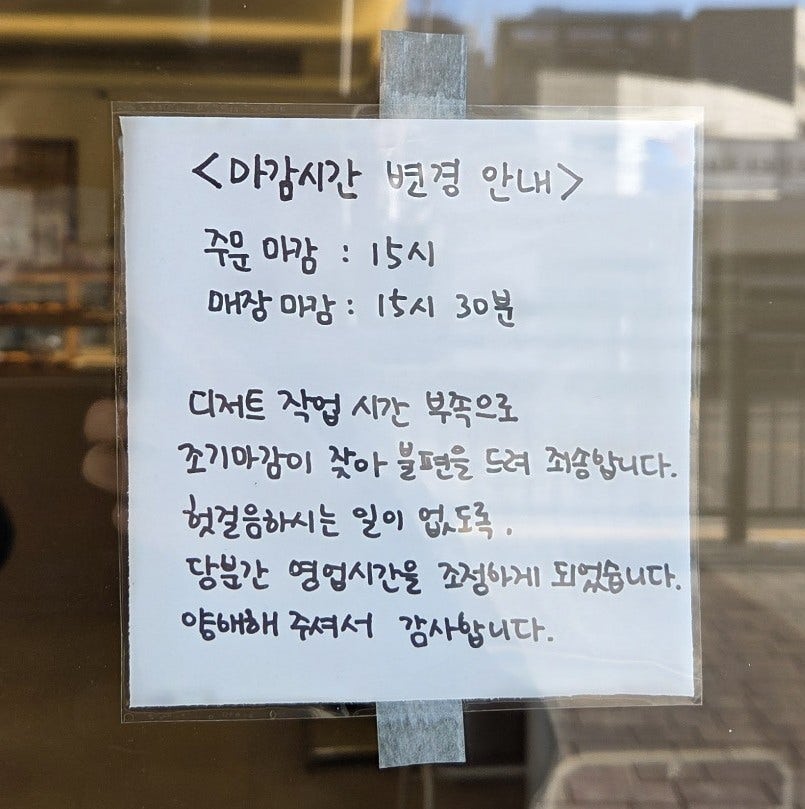 <마감시간 변경 안내>
주문 마감 : 15시
매장 마감 : 15시 30분
디저트 작업 시간 부족으로
조기마감이 잦아 불편을 드려 죄송합니다.
헛걸음하시는 일이 없도록.
당분간 영업시간을 조정하게 되었습니다.
양배해 주셔서 감사합니다.